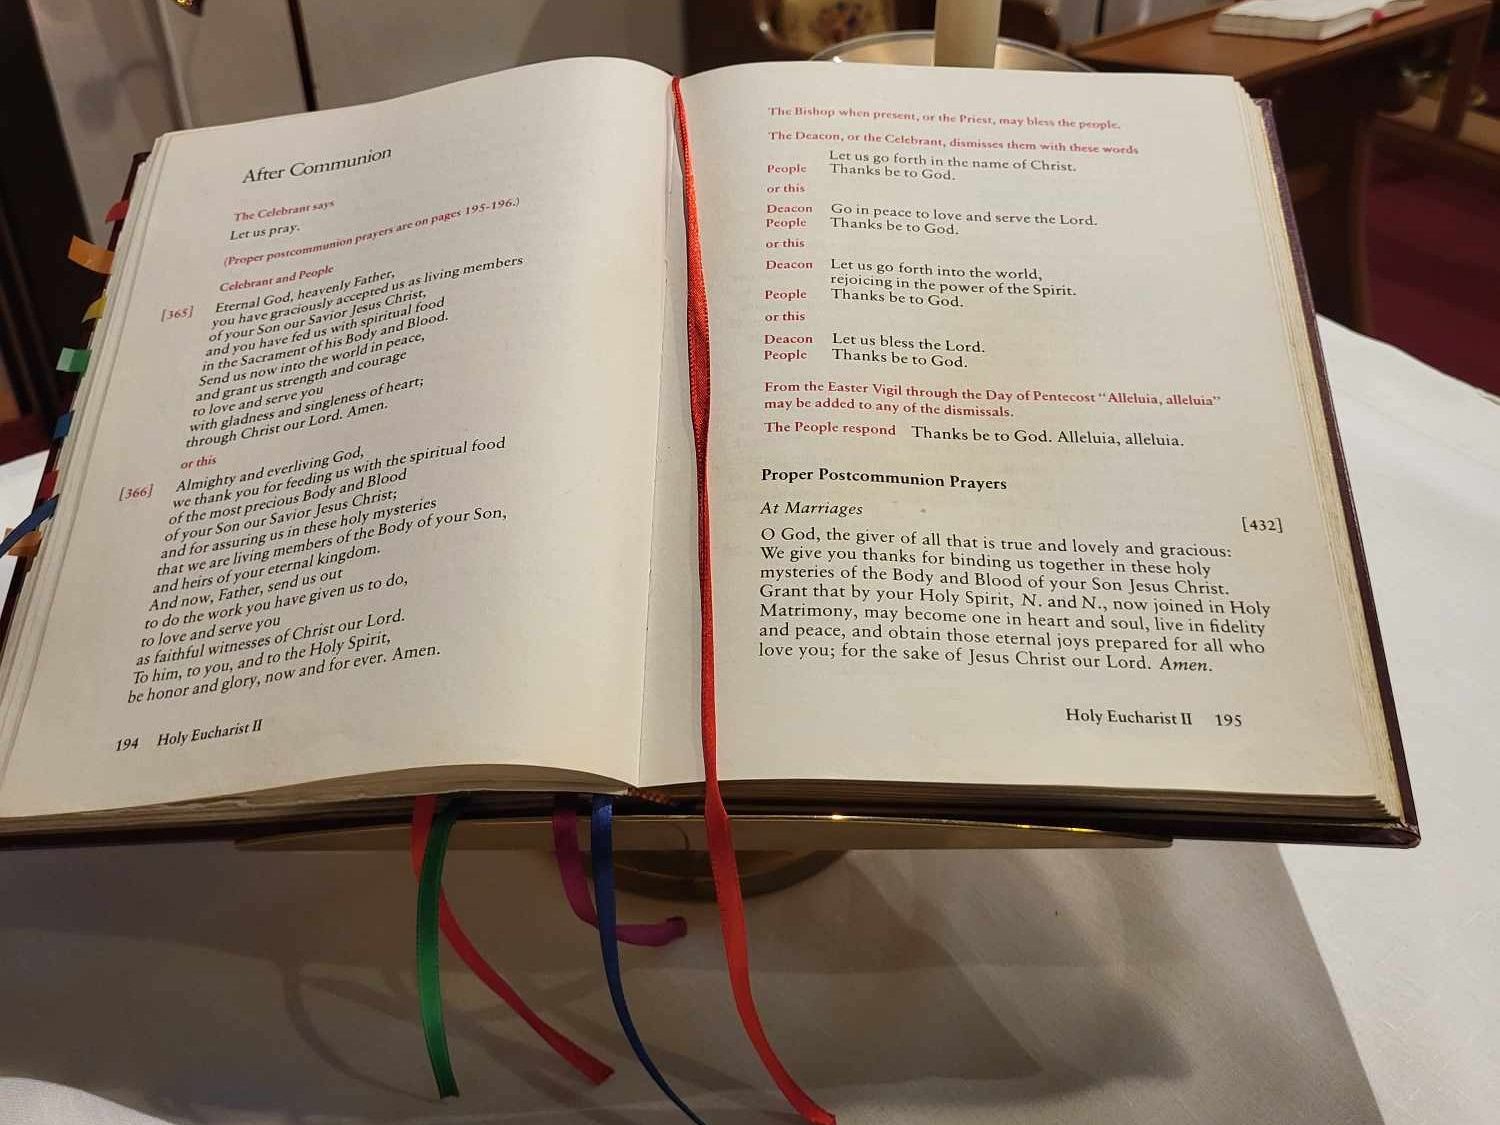 After Communion
The Celebrant says
Let us pray.
(Proper postcommunion prayers are on pages 195-196.)
Celebrant and People
[365] Eternal God, heavenly Father,
you have graciously accepted us as living members
of your Son our Savior Jesus Christ,
and you have fed us with spiritual food
in the Sacrament of his Body and Blood.
Send us now into the world in peace,
and grant us strength and courage
to love and serve you
with gladness and singleness of heart;
through Christ our Lord. Amen.
or this
[366] Almighty and everliving God,
we thank you for feeding us with the spiritual food
of the most precious Body and Blood
of your Son our Savior Jesus Christ;
and for assuring us in these holy mysteries
that we are living members of the Body of your Son,
and heirs of your eternal kingdom.
And now, Father, send us out
to do the work you have given us to do,
to love and serve you
as faithful witnesses of Christ our Lord.
To him, to you, and to the Holy Spirit,
be honor and glory, now and for ever. Amen.
194 Holy Eucharist II
The Bishop when present, or the Priest, may bless the people.
The Deacon, or the Celebrant, dismisses them with these words
Let us go forth in the name of Christ.
People Thanks be to God.
or this
Deacon Go in peace to love and serve the Lord.
People Thanks be to God.
or this
Deacon Let us go forth into the world,
rejoicing in the power of the Spirit.
People Thanks be to God.
or this
Deacon Let us bless the Lord.
People Thanks be to God.
From the Easter Vigil through the Day of Pentecost "Alleluia, alleluia"
may be added to any of the dismissals.
The People respond Thanks be to God. Alleluia, alleluia.
Proper Postcommunion Prayers
At Marriages
[432]
O God, the giver of all that is true and lovely and gracious:
We give you thanks for binding us together in these holy
mysteries of the Body and Blood of your Son Jesus Christ.
Grant that by your Holy Spirit, N. and N., now joined in Holy
Matrimony, may become one in heart and soul, live in fidelity
and peace, and obtain those eternal joys prepared for all who
love you; for the sake of Jesus Christ our Lord. Amen.
Holy Eucharist II 195